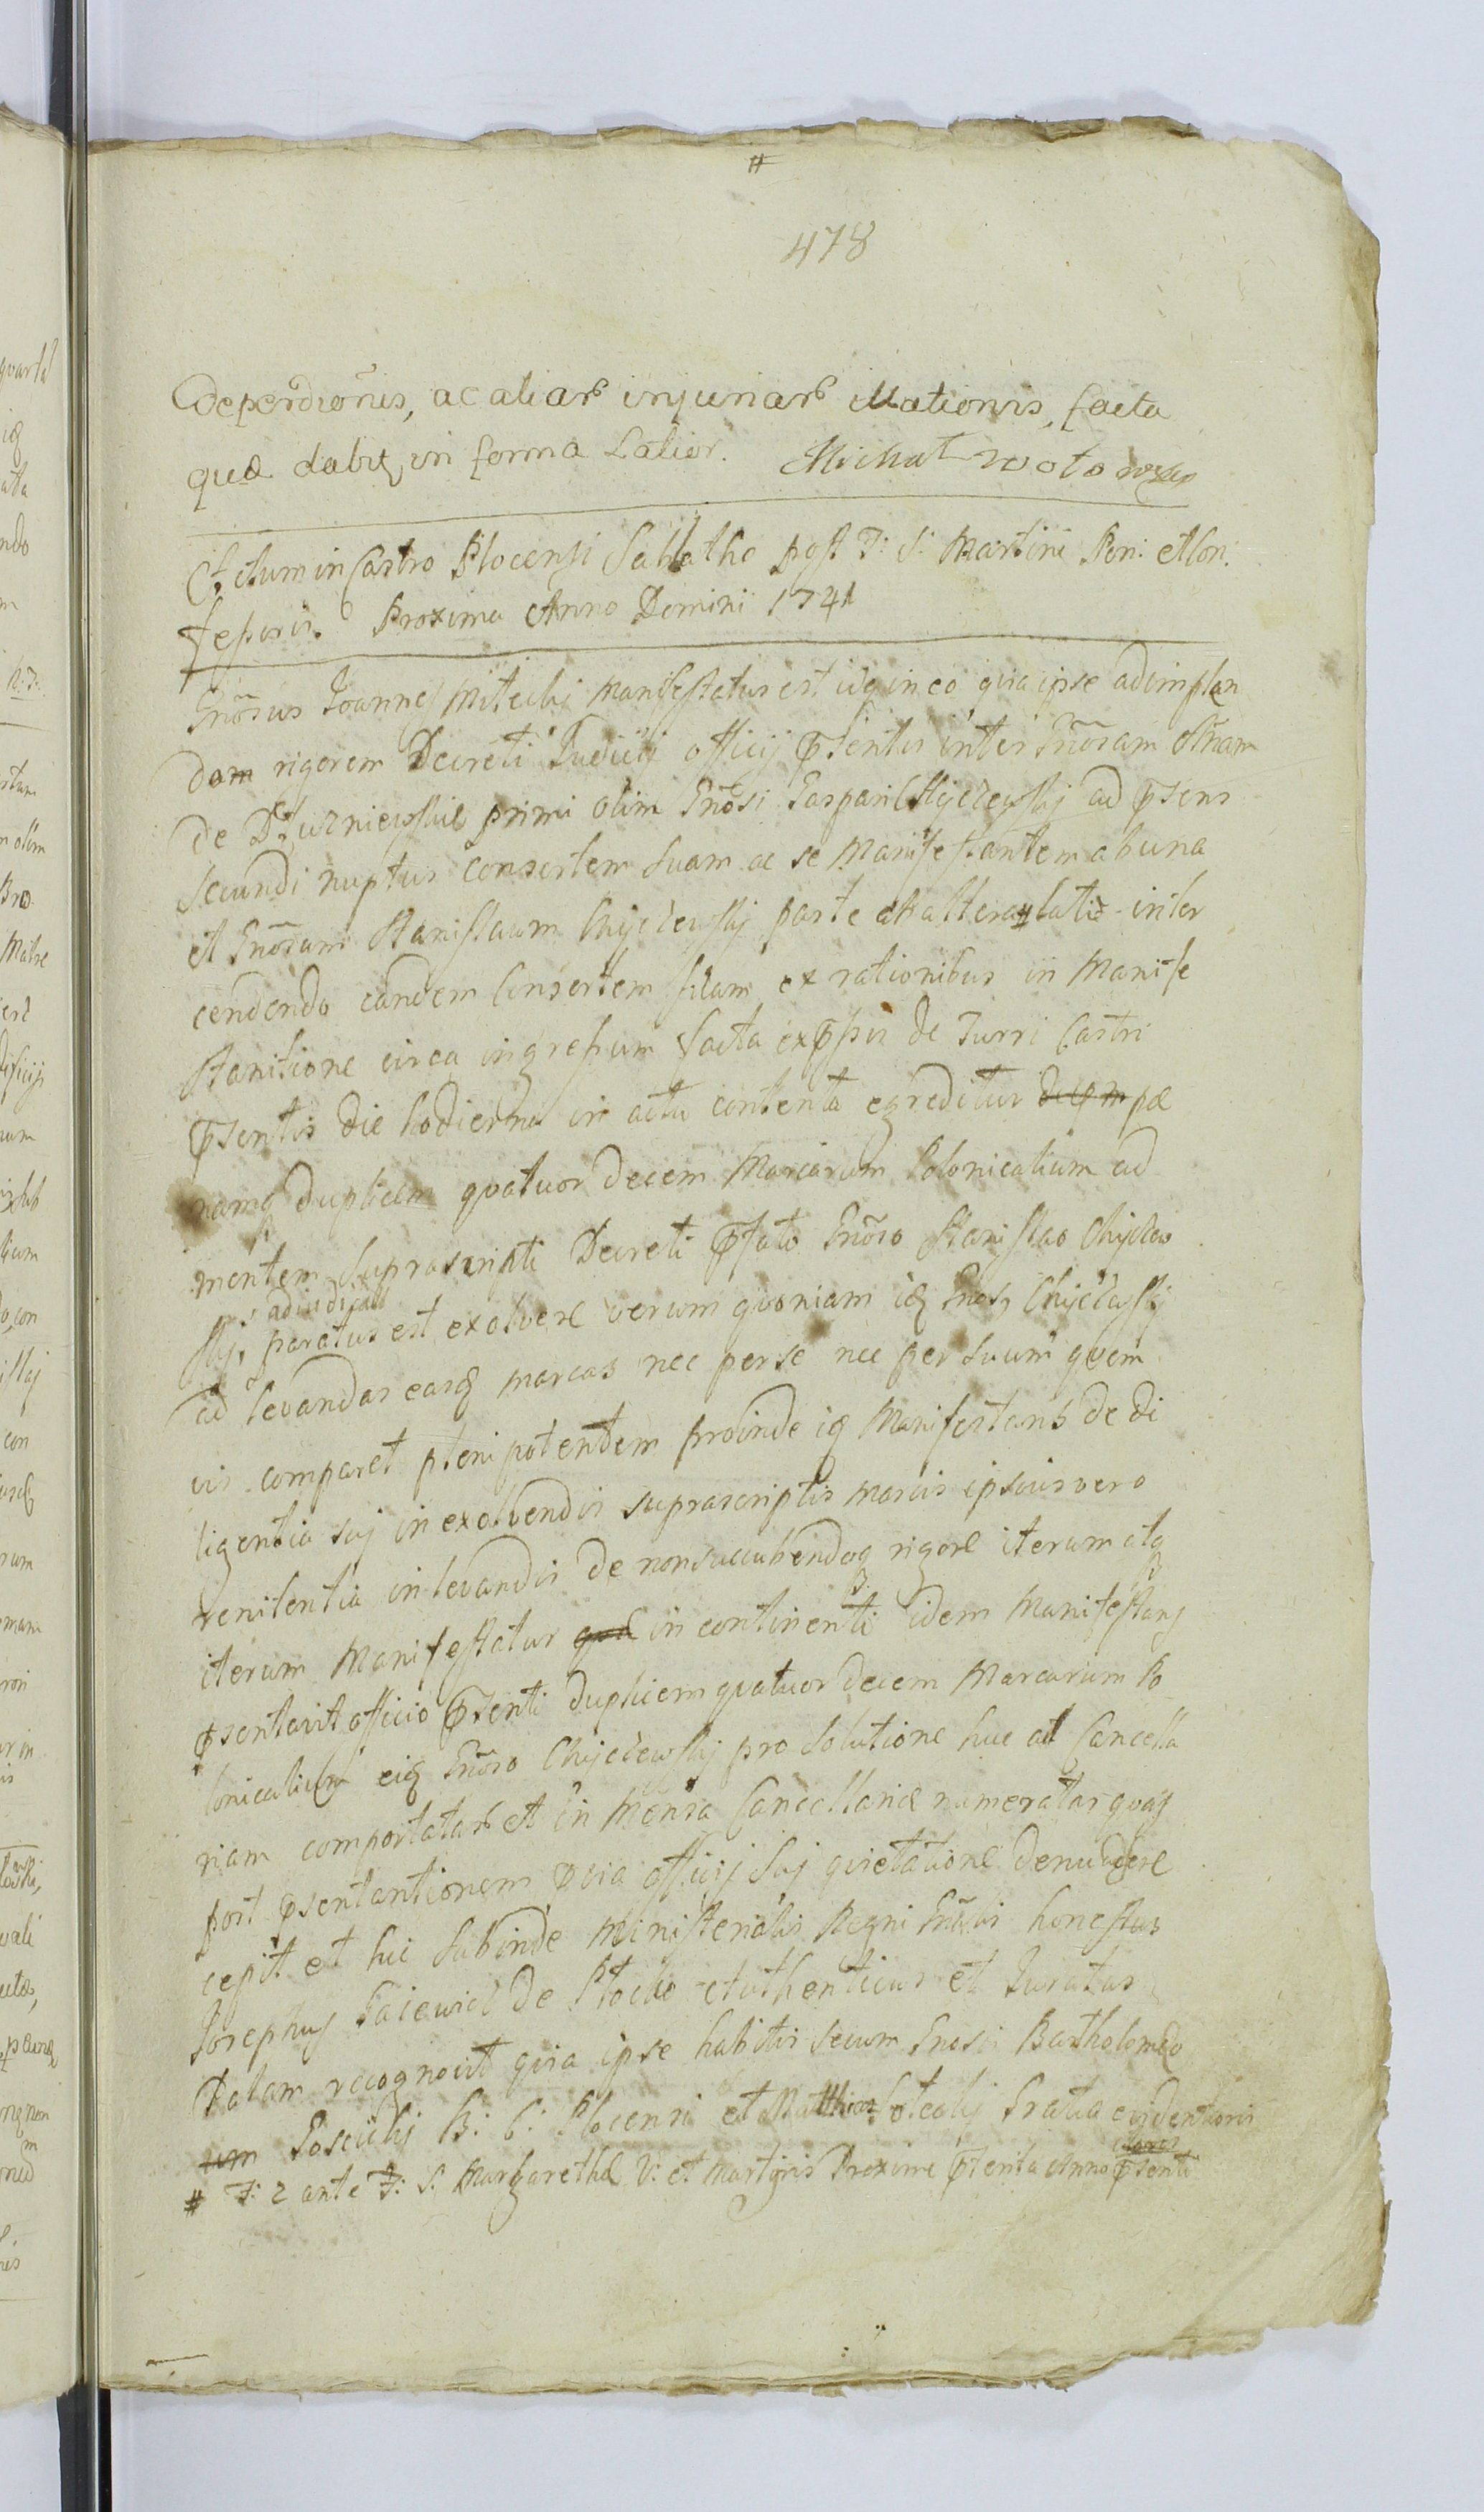 #
478
Deperdionis, ac aliar injuriar illationis, facta
quæ dabit in forma Latior. Michał Wotowski
Actum in Castro Plocensi Sabbatho post F: S: Martini Pon: et Con:
fessoris. Proximo Anno Domini 1741
Gnõsus Joannes Mitecki manifestatus est idq in eo quia ipse adimplen
dam rigorem Decreti Judicij officij pñsentis inter Gnõsam Annam
de Dziurniewskie primi olim Gnõsi Gaspari Chyczewskj ad pñsens
Secundi nuptus consortem suam ac se Manifestantem ab una
et Gnõsum Stanislaum Chyczewskj parte ab altera # latũ inter
cendendo eandem Consortem suam ex rationibus in Manife
stanitione circa ingressum facta expssis de Turri Castri
pñsentis die hodierna in actu contenta egreditur pæ
namq duplicem quatuor Decem Marcarum Polonicalium ad
mentem Suprascripti Decreti pñfato Gnõso Stanislao Chyczew
skj, adiudicatã paratus est exolvere verum quoniam idq Gnos, Chyczewskj
ad levandas easq marcas nec per se nec per suum quem
vis comparet plenipotentem proinde iq Manifestans de di
ligentia suj in exolvendis suprascriptis marcis ipsius vero
renitentia in levandis de non succubendoq rigore iterum atq
iterum Manifestatur in continenti idem Manifestans
pñsentavit officio pñsenti duplicem quatuor decem Marcarum Po
lonicalium eiq Gnõso Chyczewskj pro solutione huc ad Cancella
riam comportatas et in Mensa Cancellariæ numeratas quasq
post pñsentantionem pvia officij Suj quietatione denuo
cepit et hic Subinde Ministerialis Regni Gnãlis honestus
Josephus Gaiewicz de Plocko Authenticus et Juratus
Palam recognovit quia ipse habitis secum Gnosis Bartholomæo
um Goscicki B: C: Plocensi et Matthia Cotecki Gratia evidentioris
# F: 2 ante F: S: Margarethæ V: et Martyris Proxime pterita Anno pñsenti